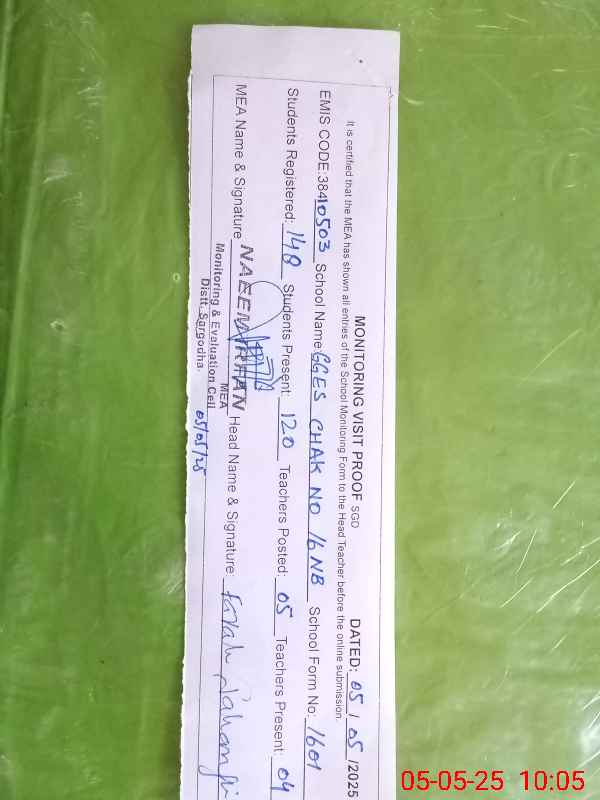 MONITORING VISIT PROOF SGD DATED: 05/05/2025
It is certified that the MEA has shown all entries of the School Monitoring Form to the Head Teacher before the online submission.
EMIS CODE:38410503 School Name GGES CHAK NO 16NB School Form No: 1601
Students Registered: 148 Students Present: 120 Teachers Posted: 05 Teachers Present: 04
MEA Name & Signature NAEEM IRFAN Head Name & Signature:
MEA
Monitoring & Evaluation Cell
Distt. Sargodha.
05/05/25
05-05-25 10:05